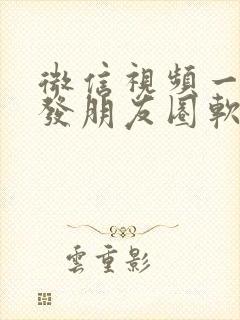 微信視頻一
發朋友圈軟
雲重影